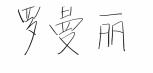 罗曼丽